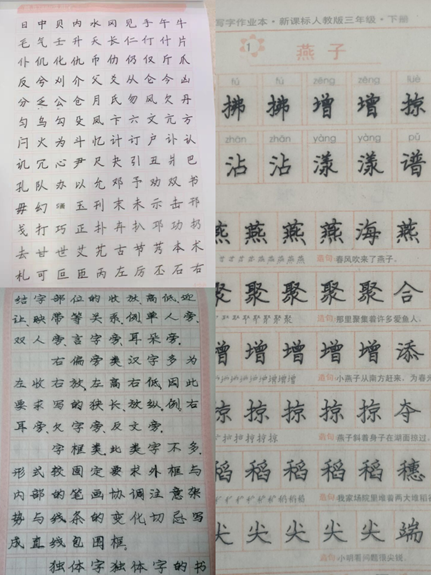 日中贝内水冈见手午牛
毛气壬升夭长仁什片
仆仉化仇币仂仍仅斤瓜
反兮刈介父爻从仑今凶
分乏公仓月氏勿风欠丹
匀乌勾殳凤卞六文亢方
闩火为斗忆计订户讣认
讥冗心尹尺夬引丑爿巴
孔队办以允邓予劝双书
毋幻玉刊末未示击邗
戋打巧正扑卉扒邛功扔
去甘世艾艽古节艿本术
札可叵匝丙左厉丕石右
结字部位的收放高低,欢
让映带等关系,例单人旁.
双人旁.言字旁.耳朵旁.
右偏旁类汉字多为
左收右放左高右低,因此
要求写的狭长.放纵.例右
耳旁.欠字旁.及文旁.
字框类:此类字不多.
形式较固定要求外框与
内部的笔画协调注意张
势与线条的变化切忌写
成直线包围框.
独体字独体字的书
写字作业本·新课标人教版三年级·下册
1 燕子
fú fú zēng zēng lüè
拂拂增增掠
zhān zhān yàng yàng pǔ
沾沾漾漾谱
燕燕燕海燕
造句 春风吹来了燕子。
聚聚聚聚合
造句 那里聚集着许多爱鱼人。
增增增增添
造句 小燕子从南方赶来，为春
掠掠掠掠夺
造句 燕子斜着身子在湖面掠过，
稻稻稻稻穗
造句 我家场院里堆着两大堆稻
尖尖尖尖端
造句 小明看问题很尖锐。